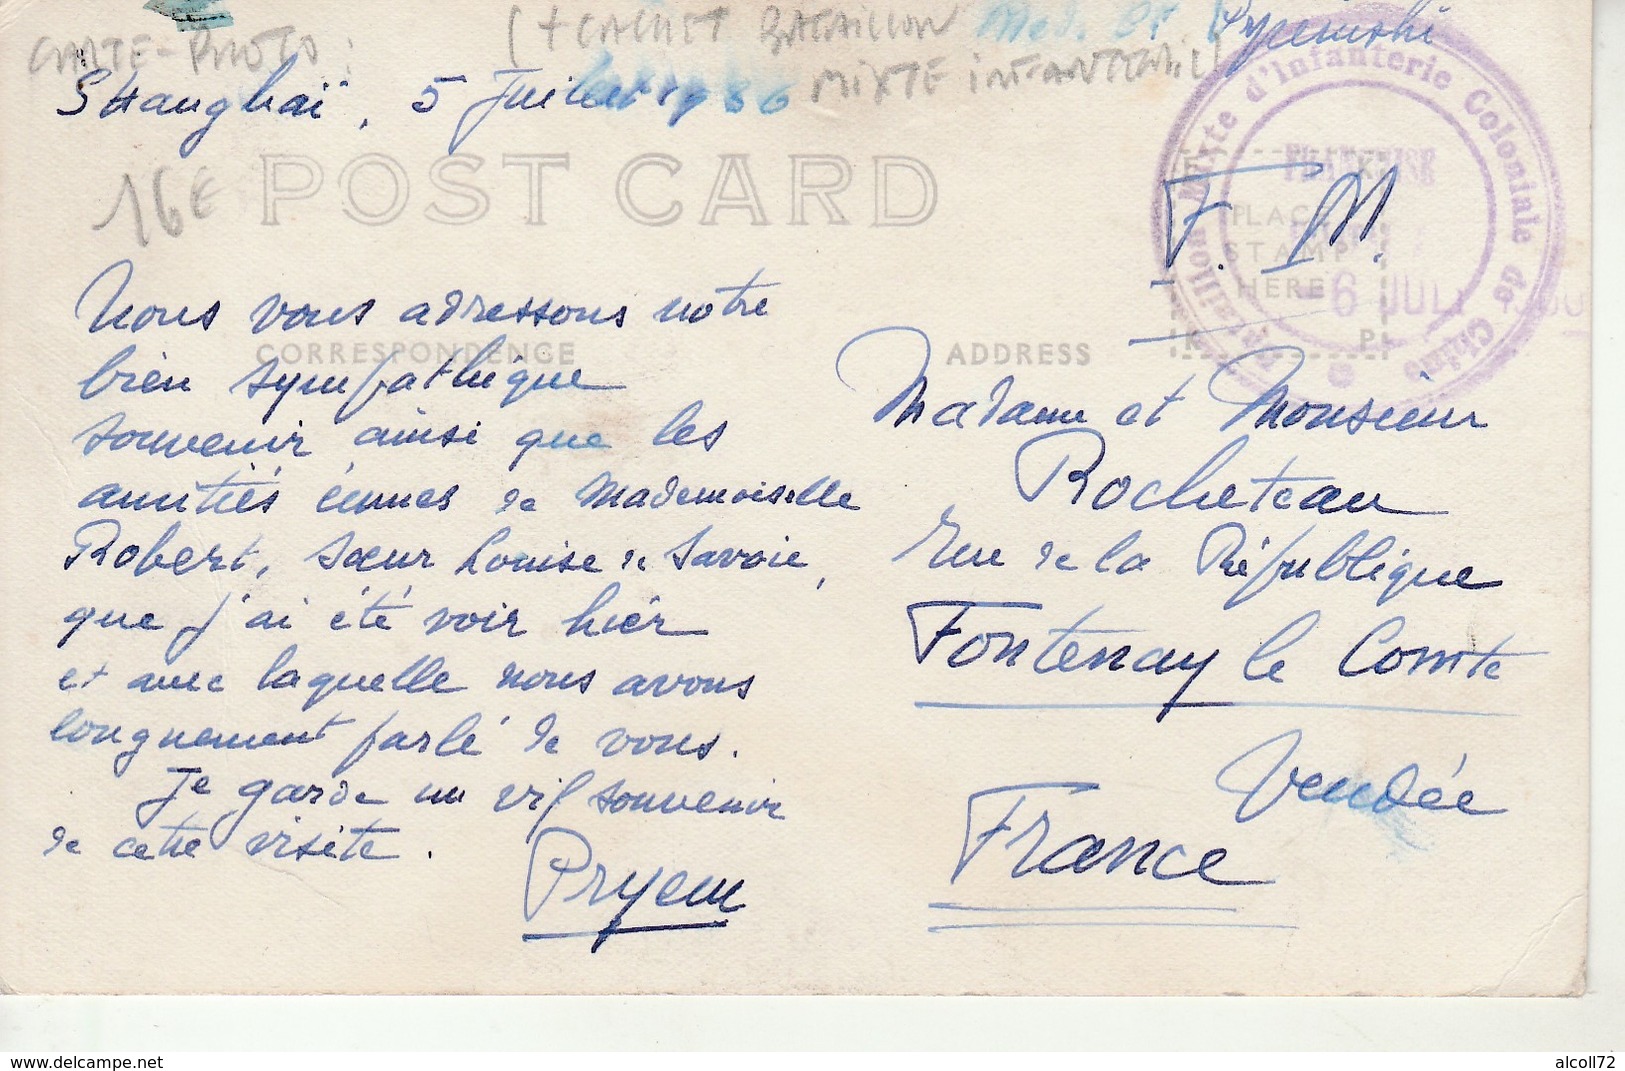 (+ CACHET BATAILLON
CARTE-PHOTO :
MIXTE INFANTERIE)
Shanghaï, 5 Juillet 1936
16€
POST CARD
F. M.
PLACE
STAMP
HERE
Bataillon Mixte d'Infanterie Coloniale de Chine
-6 JUIL 1936
CORRESPONDENCE
ADDRESS
Nous vous adressons notre
bien sympathique
souvenir ainsi que les
amitiés émues de Mademoiselle
Robert, Sœur Louise de Savoie,
que j'ai été voir hier
et avec laquelle nous avons
longuement parlé de vous.
Je garde un vif souvenir
de cette visite.
Madame et Monsieur
Rocheteau
Rue de la République
Fontenay le Comte
Vendée
France
alcoll72